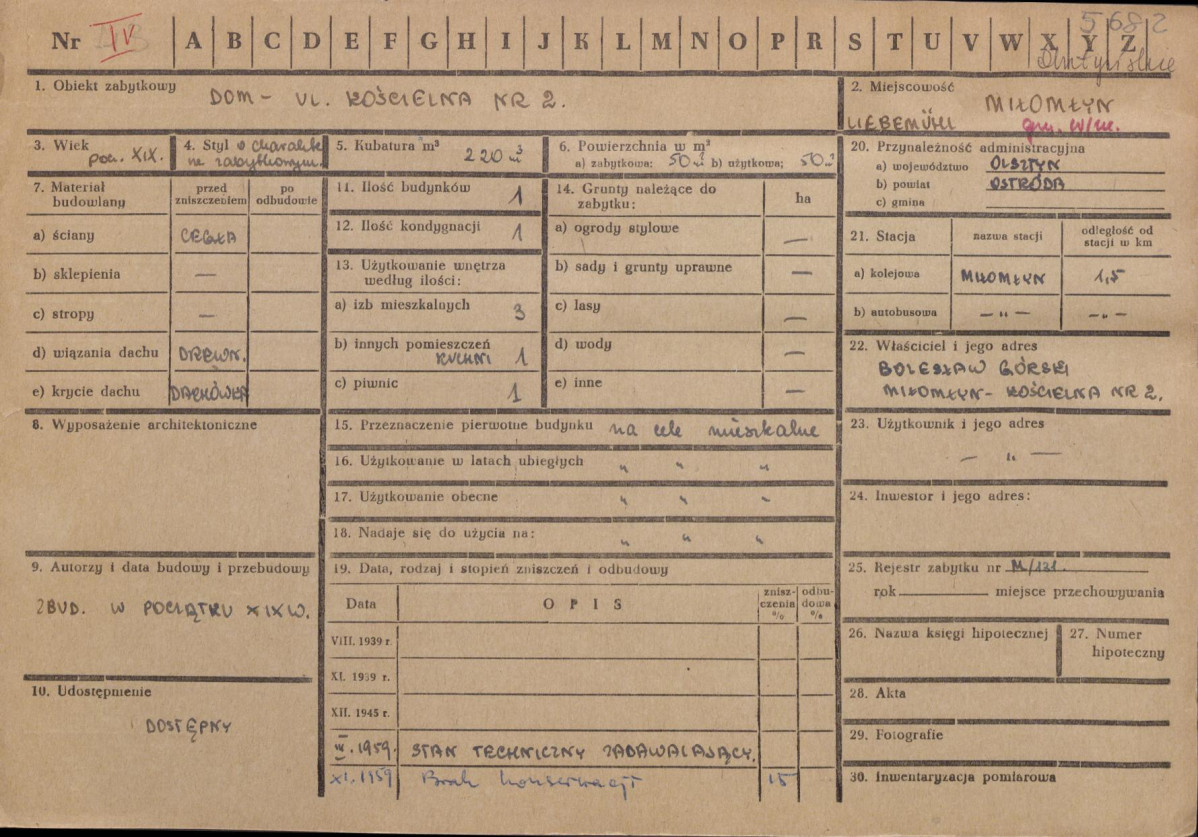 5682
Nr IV A B C D E F G H I J K L M N O P R S T U V W X Y Z
1. Obiekt zabytkowy DOM – UL. KOŚCIELNA NR 2.
2. Miejscowość
MIŁOMŁYN
LIEBEMÜHL gm. w/m.
3. Wiek
pocz. XIX.
4. Styl o charakte
rze zabytkowym.
5. Kubatura m³
220 m³
6. Powierzchnia w m²
a) zabytkowa: 50 m² b) użytkowa: 50 m²
7. Materiał budowlany
przed zniszczeniem
po odbudowie
a) ściany CEGŁA
b) sklepienia —
c) stropy —
d) wiązania dachu DREWN.
e) krycie dachu DACHÓWKA
8. Wyposażenie architektoniczne
9. Autorzy i data budowy i przebudowy
ZBUD. W POCZĄTKU XIX W.
10. Udostępnienie
DOSTĘPNY
11. Ilość budynków 1
12. Ilość kondygnacji 1
13. Użytkowanie wnętrza
według ilości:
a) izb mieszkalnych 3
b) innych pomieszczeń
KUCHNI 1
c) piwnic 1
14. Grunty należące do
zabytku:
ha
a) ogrody stylowe —
b) sady i grunty uprawne —
c) lasy —
d) wody —
e) inne —
15. Przeznaczenie pierwotne budynku na cele mieszkalne
16. Użytkowanie w latach ubiegłych " " "
17. Użytkowanie obecne " " "
18. Nadaje się do użycia na: " " "
19. Data, rodzaj i stopień zniszczeń i odbudowy
Data
OPIS
znisz-
czenia
%
odbu-
dowa
%
VIII. 1939 r.
XI. 1939 r.
XII. 1945 r.
1959. STAN TECHNICZNY ZADAWALAJĄCY.
XI. 1959 Brak konserwacji 15
20. Przynależność administracyjna
a) województwo OLSZTYN
b) powiat OSTRÓDA
c) gmina
21. Stacja
nazwa stacji
odległość od
stacji w km
a) kolejowa MIŁOMŁYN 1,5
b) autobusowa — " — — " —
22. Właściciel i jego adres
BOLESŁAW GÓRSKI
MIŁOMŁYN – KOŚCIELNA NR 2.
23. Użytkownik i jego adres
— " —
24. Inwestor i jego adres:
25. Rejestr zabytku nr M/131.
rok miejsce przechowywania
26. Nazwa księgi hipotecznej
27. Numer
hipoteczny
28. Akta
29. Fotografie
30. Inwentaryzacja pomiarowa